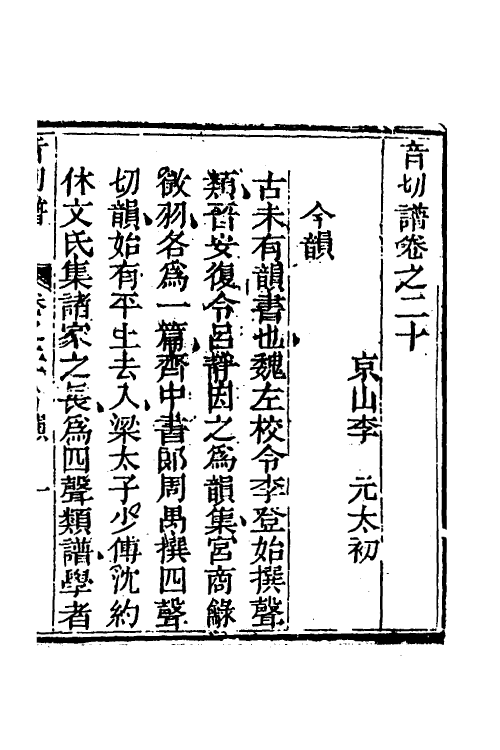 音切譜卷之二十
京山李　元太初
今韻
古未有韻書也魏左校令李登始撰聲
類晉安復令呂靜因之為韻集宮商䘵
徵羽各為一篇齊中書郎周顒撰四聲
切韻始有平上去入梁太子少傅沈約
休文氏集諸家之長為四聲類譜學者
音切譜